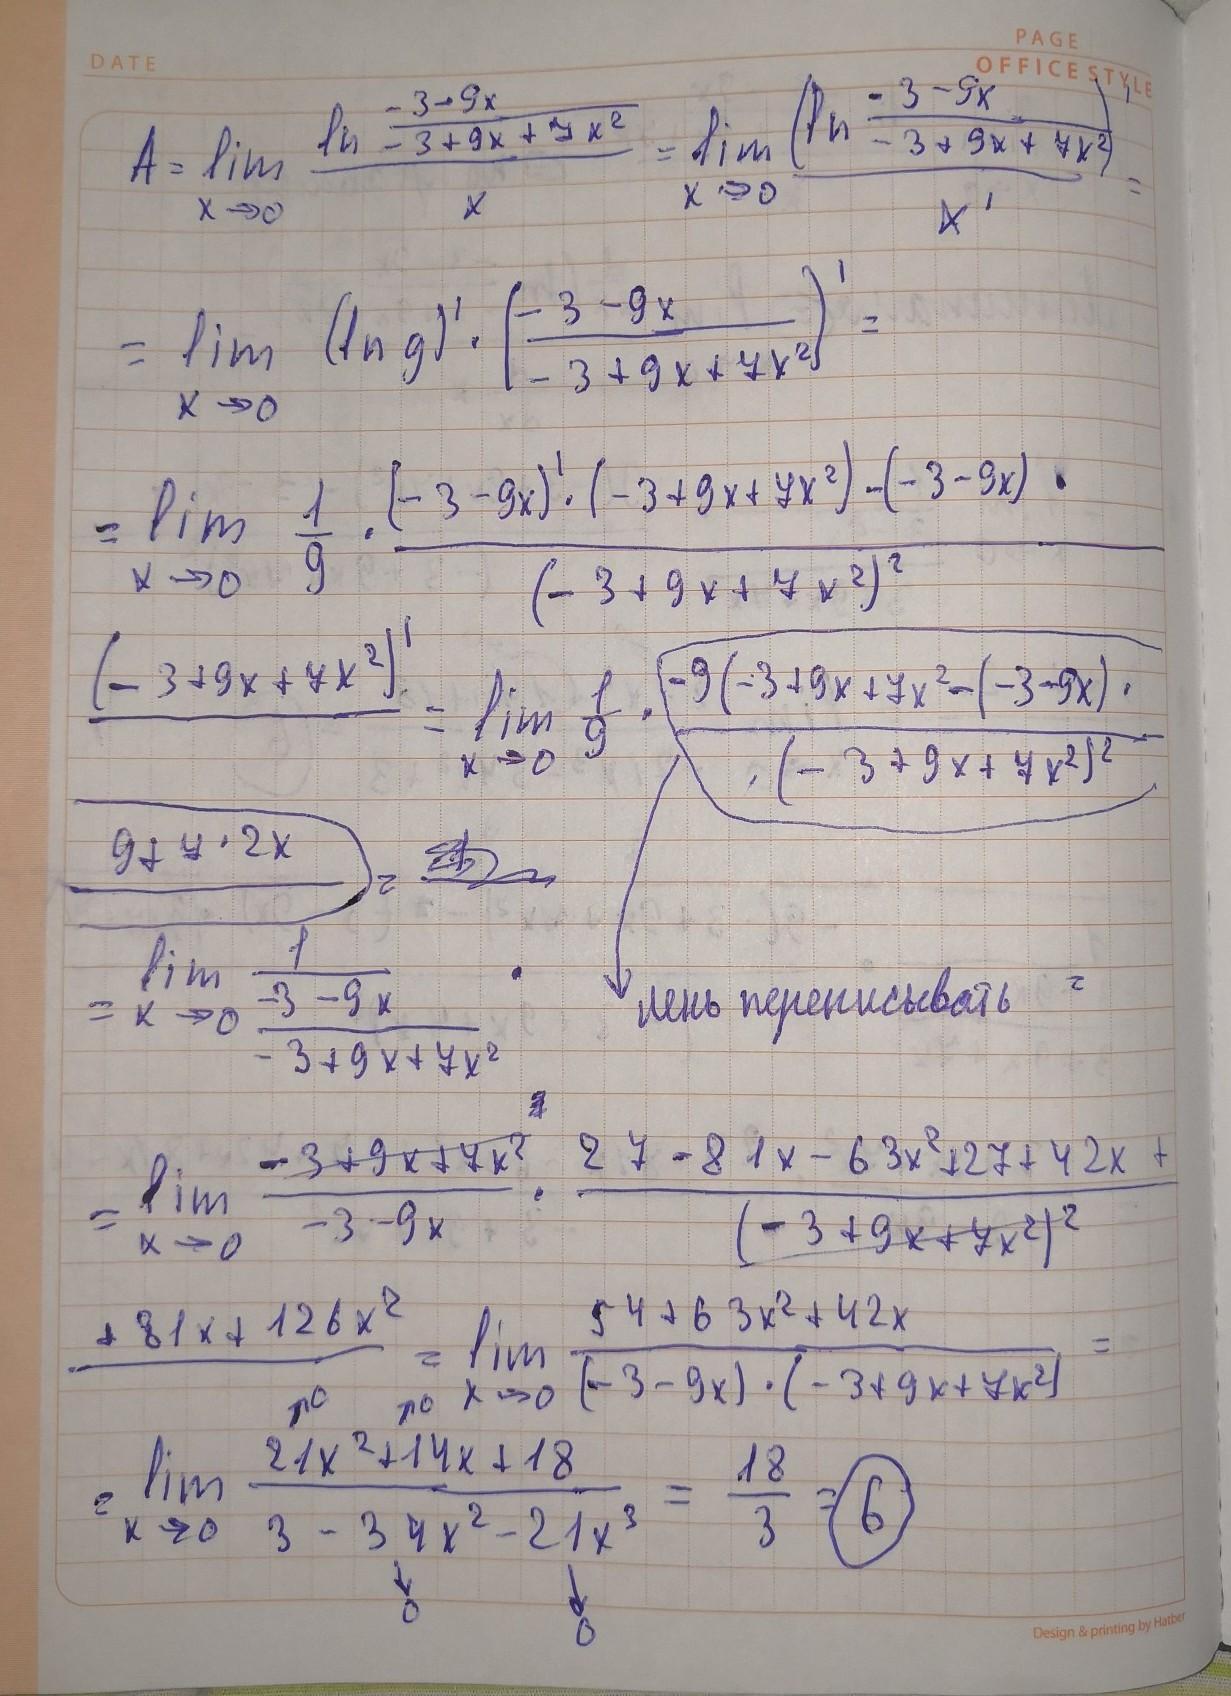 DATE
PAGE
OFFICE STYLE
A = lim x→0 ln (-3-9x)/(-3+9x+7x²) / x = lim x→0 (ln (-3-9x)/(-3+9x+7x²))' / x' =
= lim x→0 (ln g)' · ((-3-9x)/(-3+9x+7x²))' =
= lim x→0 1/g · (-3-9x)'·(-3+9x+7x²)-(-3-9x) · / (-3+9x+7x²)²
(-3+9x+7x²)' = lim x→0 1/g · -9(-3+9x+7x²-(-3-9x) · / ·(-3+9x+7x²)²
9+7·2x =
= lim x→0 1 / (-3-9x)/(-3+9x+7x²) · лень переписывать =
= lim x→0 (-3+9x+7x²)/(-3-9x) · 27-81x-63x²+27+42x+ / (-3+9x+7x²)²
+81x+126x² = lim x→0 54+63x²+42x / (-3-9x)·(-3+9x+7x²) =
= lim x→0 21x²+14x+18 / 3-34x²-21x³ = 18/3 = 6
→0 →0
0 0
Design & printing by Hatber